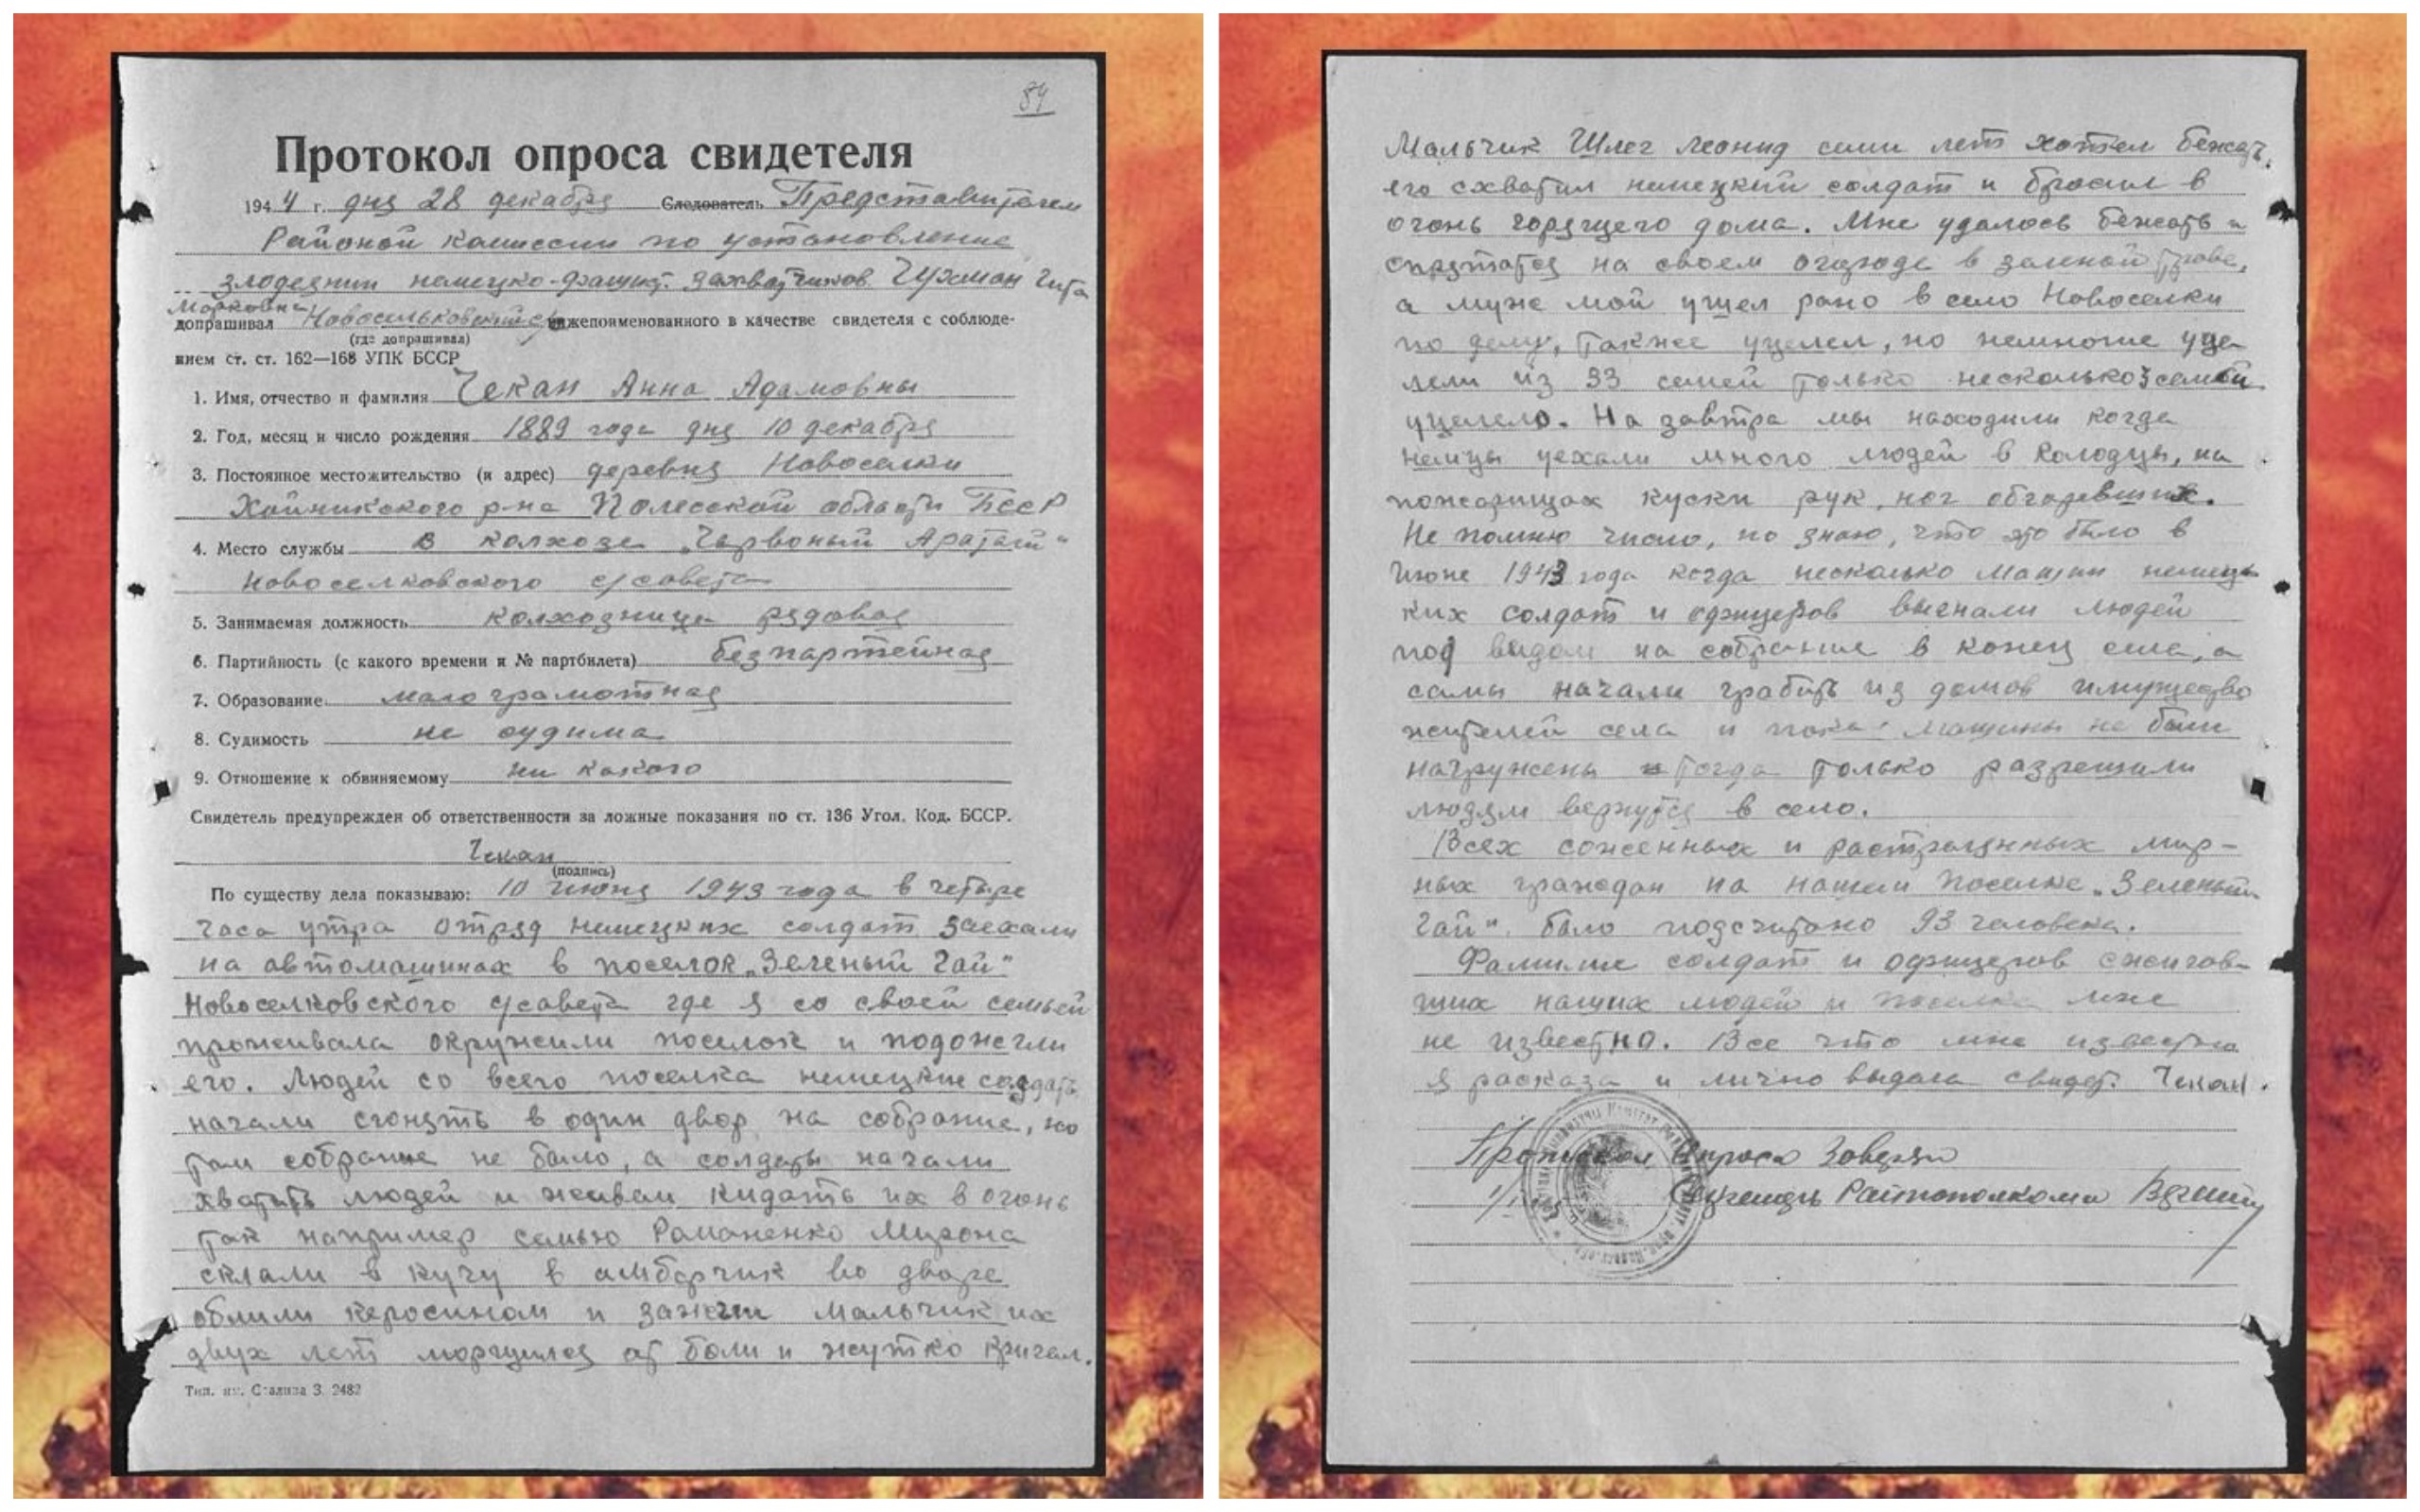 84
Протокол опроса свидетеля
1944 г. дня 28 декабря Следователь Представителем
Районой комиссии по установление
злодеянии немецко-фашист. захватчиков Гита
Марковна
допрашивал Новосельковский с/с нижепоименованного в качестве свидетеля с соблюде-
(где допрашивал)
нием ст. ст. 162—168 УПК БССР
1. Имя, отчество и фамилия Чекан Анна Адамовны
2. Год, месяц и число рождения 1889 года дня 10 декабря
3. Постоянное местожительство (и адрес) деревня Новоселки
Хойникского р-на Полесской области БССР
4. Место службы в колхозе „Чарвоный Аратый"
Новоселковского с/совета
5. Занимаемая должность колхозница рядовая
6. Партийность (с какого времени и № партбилета) безпартейная
7. Образование малограмотная
8. Судимость не судима
9. Отношение к обвиняемому ни какого
Свидетель предупрежден об ответственности за ложные показания по ст. 136 Угол. Код. БССР.
Чекан
(подпись)
По существу дела показываю: 10 июня 1943 года в четыре
часа утра отряд немецких солдат заехали
на автомашинах в поселок „Зеленый Гай"
Новоселковского с/совета где я со своей семьей
проживала окружили поселок и подожгли
его. Людей со всего поселка немецкие солдаты
начали сгонять в один двор на собрание, но
там собрание не было, а солдаты начали
хватать людей и живем кидать их в огонь
так например семью Романенко Мирона
склали в кучу в амбарчик во дворе
облили керосином и зажгли мальчик их
двух лет морщился от боли и жутко кричал.
Тип. им. Сталина З. 2482
Мальчик Шлег Леонид семи лет хотел бежать,
его схватил немецкий солдат и бросил в
огонь горящего дома. Мне удалось бежать и
спрятатся на своем огороде в зеленой траве,
а муж мой ушел рано в село Новоселки
по делу, также уцелел, но немногие уце
лели из 33 семей только несколько семей
уцелело. На завтра мы находили когда
немцы уехали много людей в колодцы, на
пожарищах куски рук, ног обгоревших.
Не помню число, но знаю, что это было в
Июне 1943 года когда несколько машин немец
ких солдат и офицеров выгнали людей
под видом на собрание в конец села, а
самы начали грабить из домов имущество
жителей села и пока машины не были
нагружены тогда только разрешили
людям вернутся в село.
Всех соженных и растрелянных мир-
ных граждан на нашем поселке „Зеленый
Гай" было подсчитано 93 человека.
Фамилие солдат и офицеров сжигав-
ших наших людей и поселка мне
не известно. Все что мне известно
я расказа и лично выдала свидет. Чекан.
Протокол Опроса Заверяю
Секретарь Райисполкома